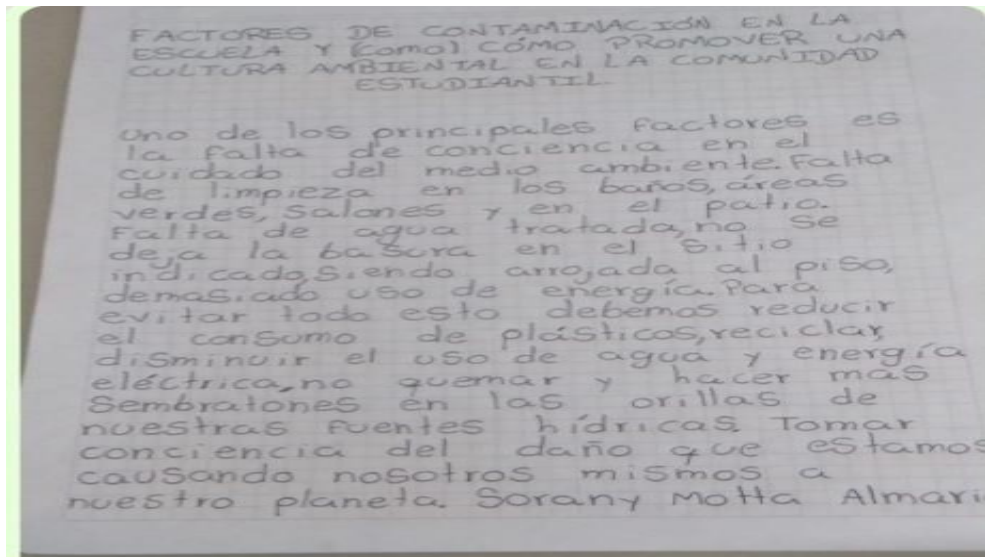 FACTORES DE CONTAMINACIÓN EN LA
ESCUELA Y (como) CÓMO PROMOVER UNA
CULTURA AMBIENTAL EN LA COMUNIDAD
ESTUDIANTIL
uno de los principales factores es
la falta de conciencia en el
cuidado del medio ambiente. Falta
de limpieza en los baños, áreas
verdes, salones y en el patio.
Falta de agua tratada, no se
deja la basura en el sitio
indicado, siendo arrojada al piso,
demasiado uso de energía. Para
evitar todo esto debemos reducir
el consumo de plásticos, reciclar,
disminuir el uso de agua y energía
eléctrica, no quemar y hacer más
sembratones en las orillas de
nuestras fuentes hídricas. Tomar
conciencia del daño que estamos
causando nosotros mismos a
nuestro planeta. Sorany Motta Almari